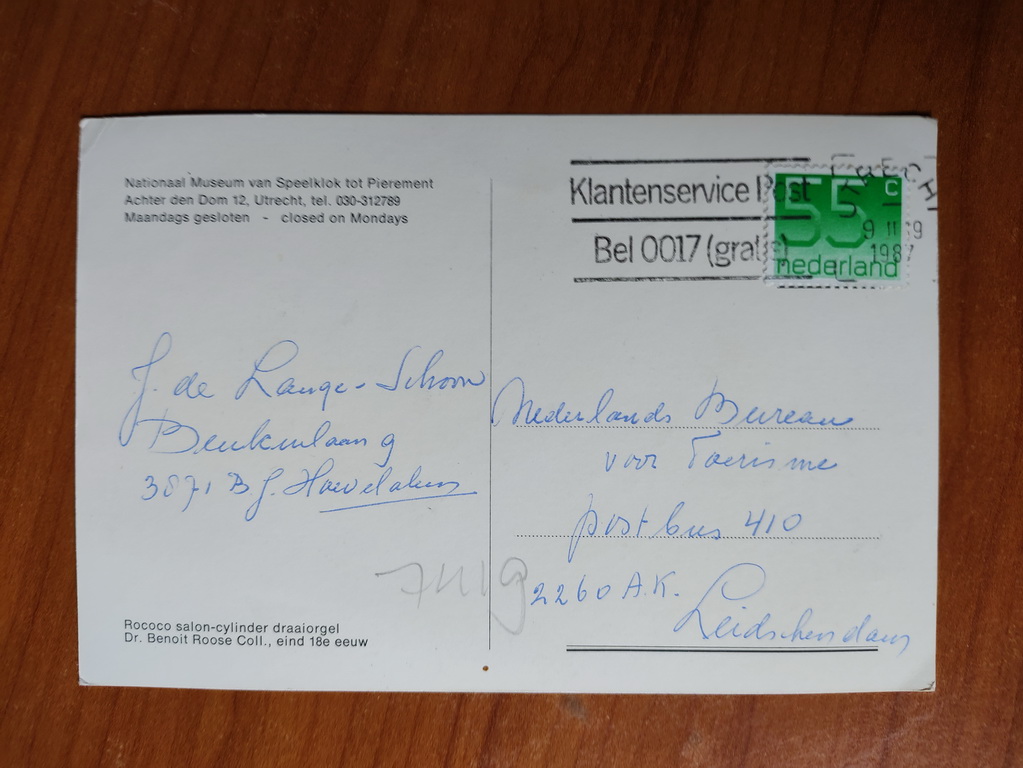 Nationaal Museum van Speelklok tot Pierement
Achter den Dom 12, Utrecht, tel. 030-312789
Maandags gesloten - closed on Mondays
Klantenservice Post
Bel 0017 (gratis)
55 c
nederland
1987
J. de Lange-Schoon
Beukenlaan 9
3871 BJ. Hoevelaken
Nederlands Bureau
voor Toerisme
postbus 410
2260 A.K.
Leidschendam
Rococo salon-cylinder draaiorgel
Dr. Benoit Roose Coll., eind 18e eeuw